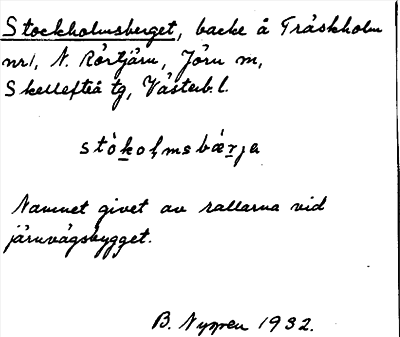 Stockholmsberget, backe å Träskholm
nr 1, N. Rörtjärn, Jörn m,
Skellefteå tg, Västerb. l.
stòkolmsbærja
Namnet givet av rallarna vid
järnvägsbygget.
B. Nyssen 1932.